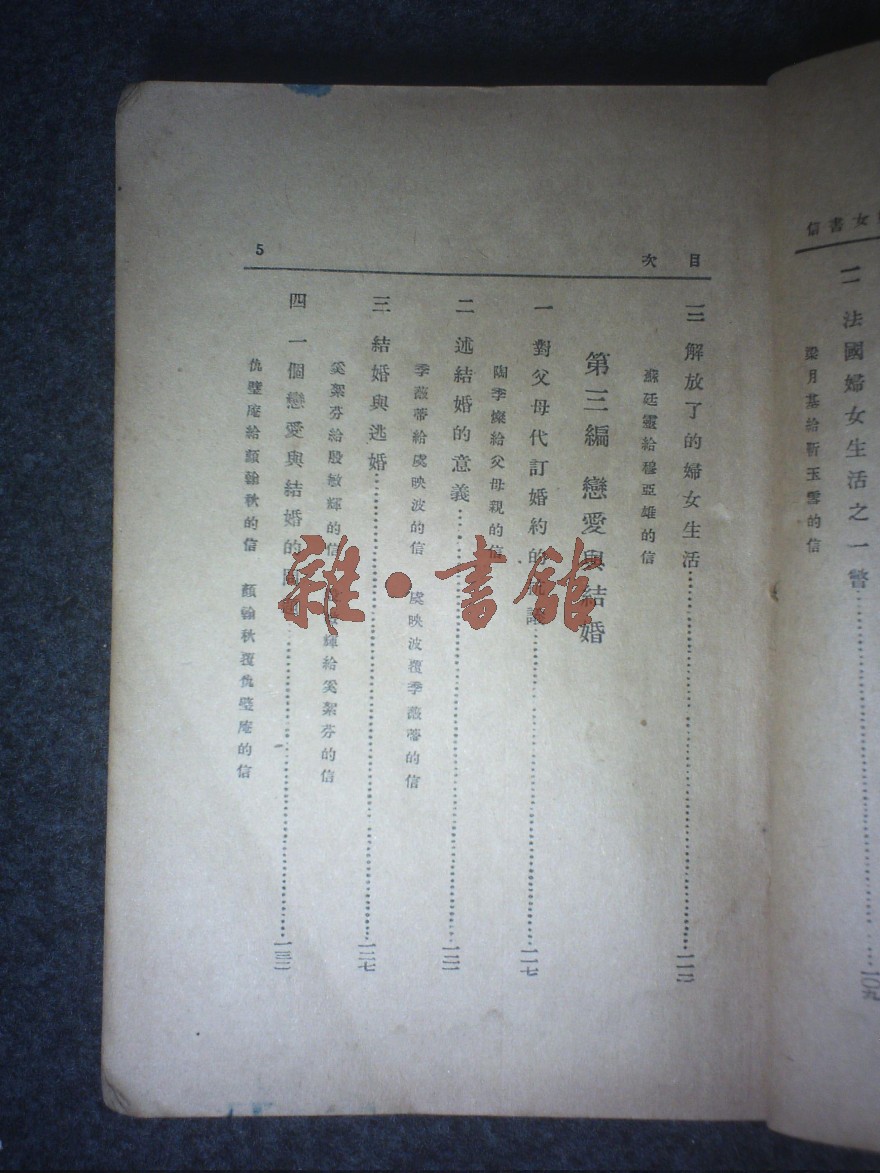 女書信
法國婦女生活之一瞥……一〇九
梁月基給靳玉雪的信
目次 5
一三 解放了的婦女生活……一一二
蘇廷靈給穆亞雄的信
第三編 戀愛與結婚
一 對父母代訂婚約的……一一七
陶季燦給父母親的信
二 述結婚的意義……一二二
季薇蒂給虞映波的信 虞映波覆季薇蒂的信
三 結婚與逃婚……一二七
奚絜芬給殷敏輝的信 敏輝給奚絜芬的信
四 一個戀愛與結婚的……一三二
仇璧庵給顏翰秋的信 顏翰秋覆仇璧庵的信
雜·書館